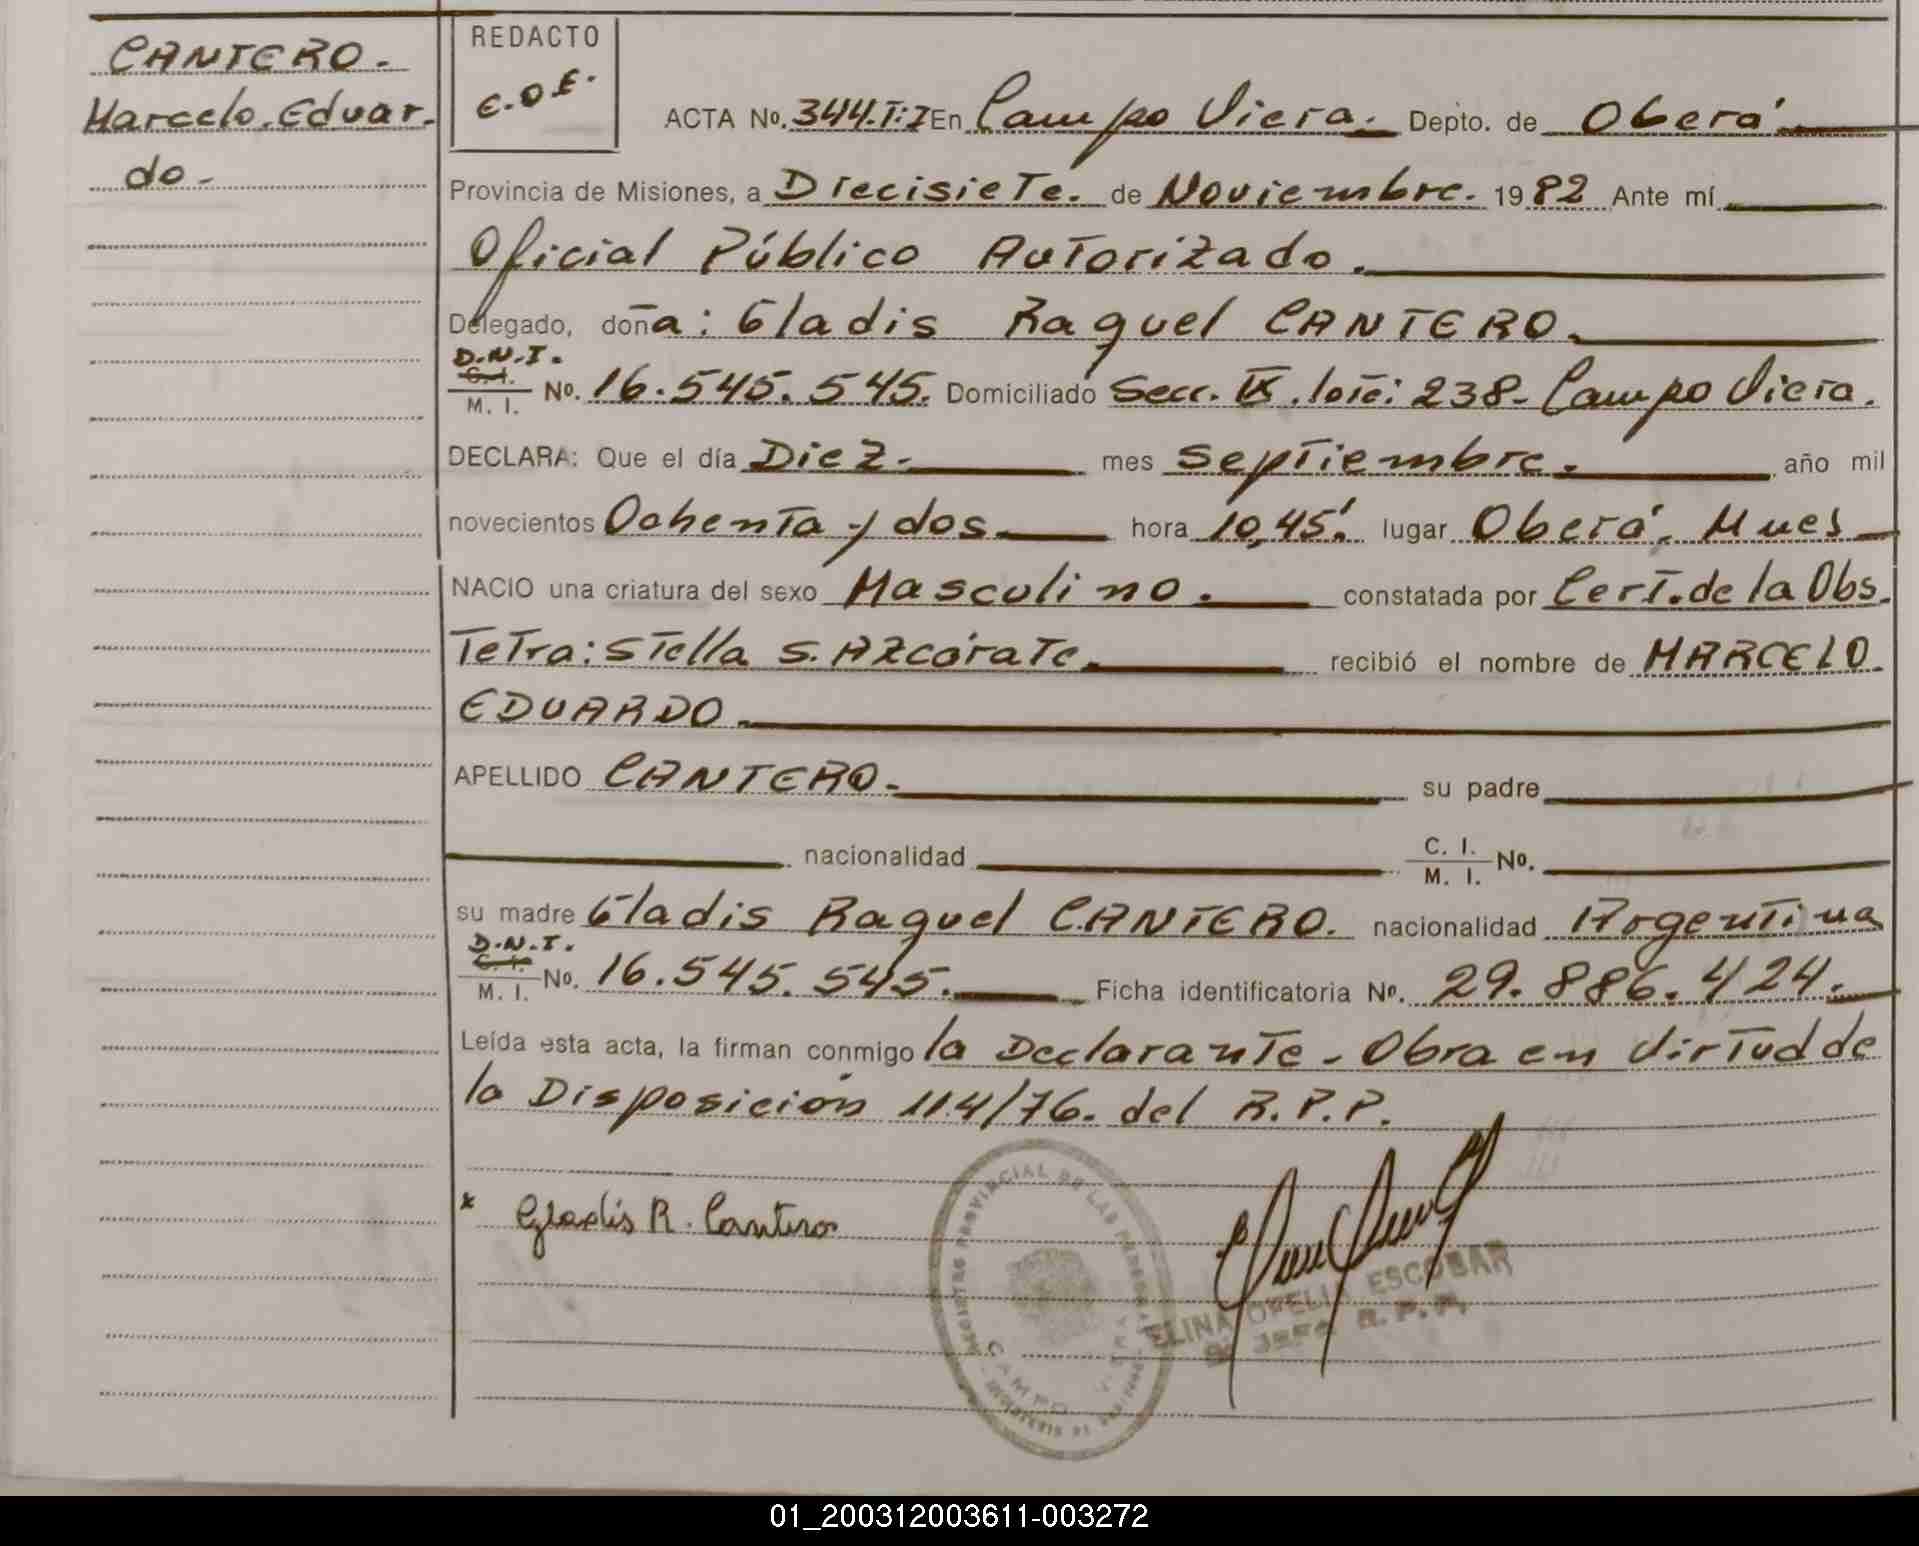 CANTERO.
Marcelo.Eduar.
do-
REDACTO
E.O.E.
ACTA No. 344.T:I En Campo Viera. Depto. de Oberá
Provincia de Misiones, a Diecisiete. de Noviembre. 1982 Ante mí
Oficial Público Autorizado.
Delegado, doña: Gladis Raquel CANTERO.
D.N.I.
C. I.
M. I. No. 16.545.545. Domiciliado Secc. IX.lote: 238- Campo Viera.
DECLARA: Que el día Diez. mes Septiembre. año mil
novecientos Ochenta y dos. hora 10,45'. lugar Oberá, Mnes
NACIO una criatura del sexo Masculino. constatada por Cert.de la Obs.
Tetra: Stella S. Azcórate. recibió el nombre de MARCELO
EDUARDO.
APELLIDO CANTERO. su padre
nacionalidad C. I. M. I. No.
su madre Gladis Raquel CANTERO. nacionalidad Argentina
D.N.I.
C. I.
M. I. No. 16.545.545. Ficha identificatoria No. 29.886.424.
Leída esta acta, la firman conmigo la Declarante - Obra en virtud de
la Disposición 114/76. del R.P.P.
x Gladis R. Cantero
REGISTRO PROVINCIAL DE LAS PERSONAS
CAMPO VIERA
ELINA OFELIA ESCOBAR
JEFE R.P.P.
01_200312003611-003272